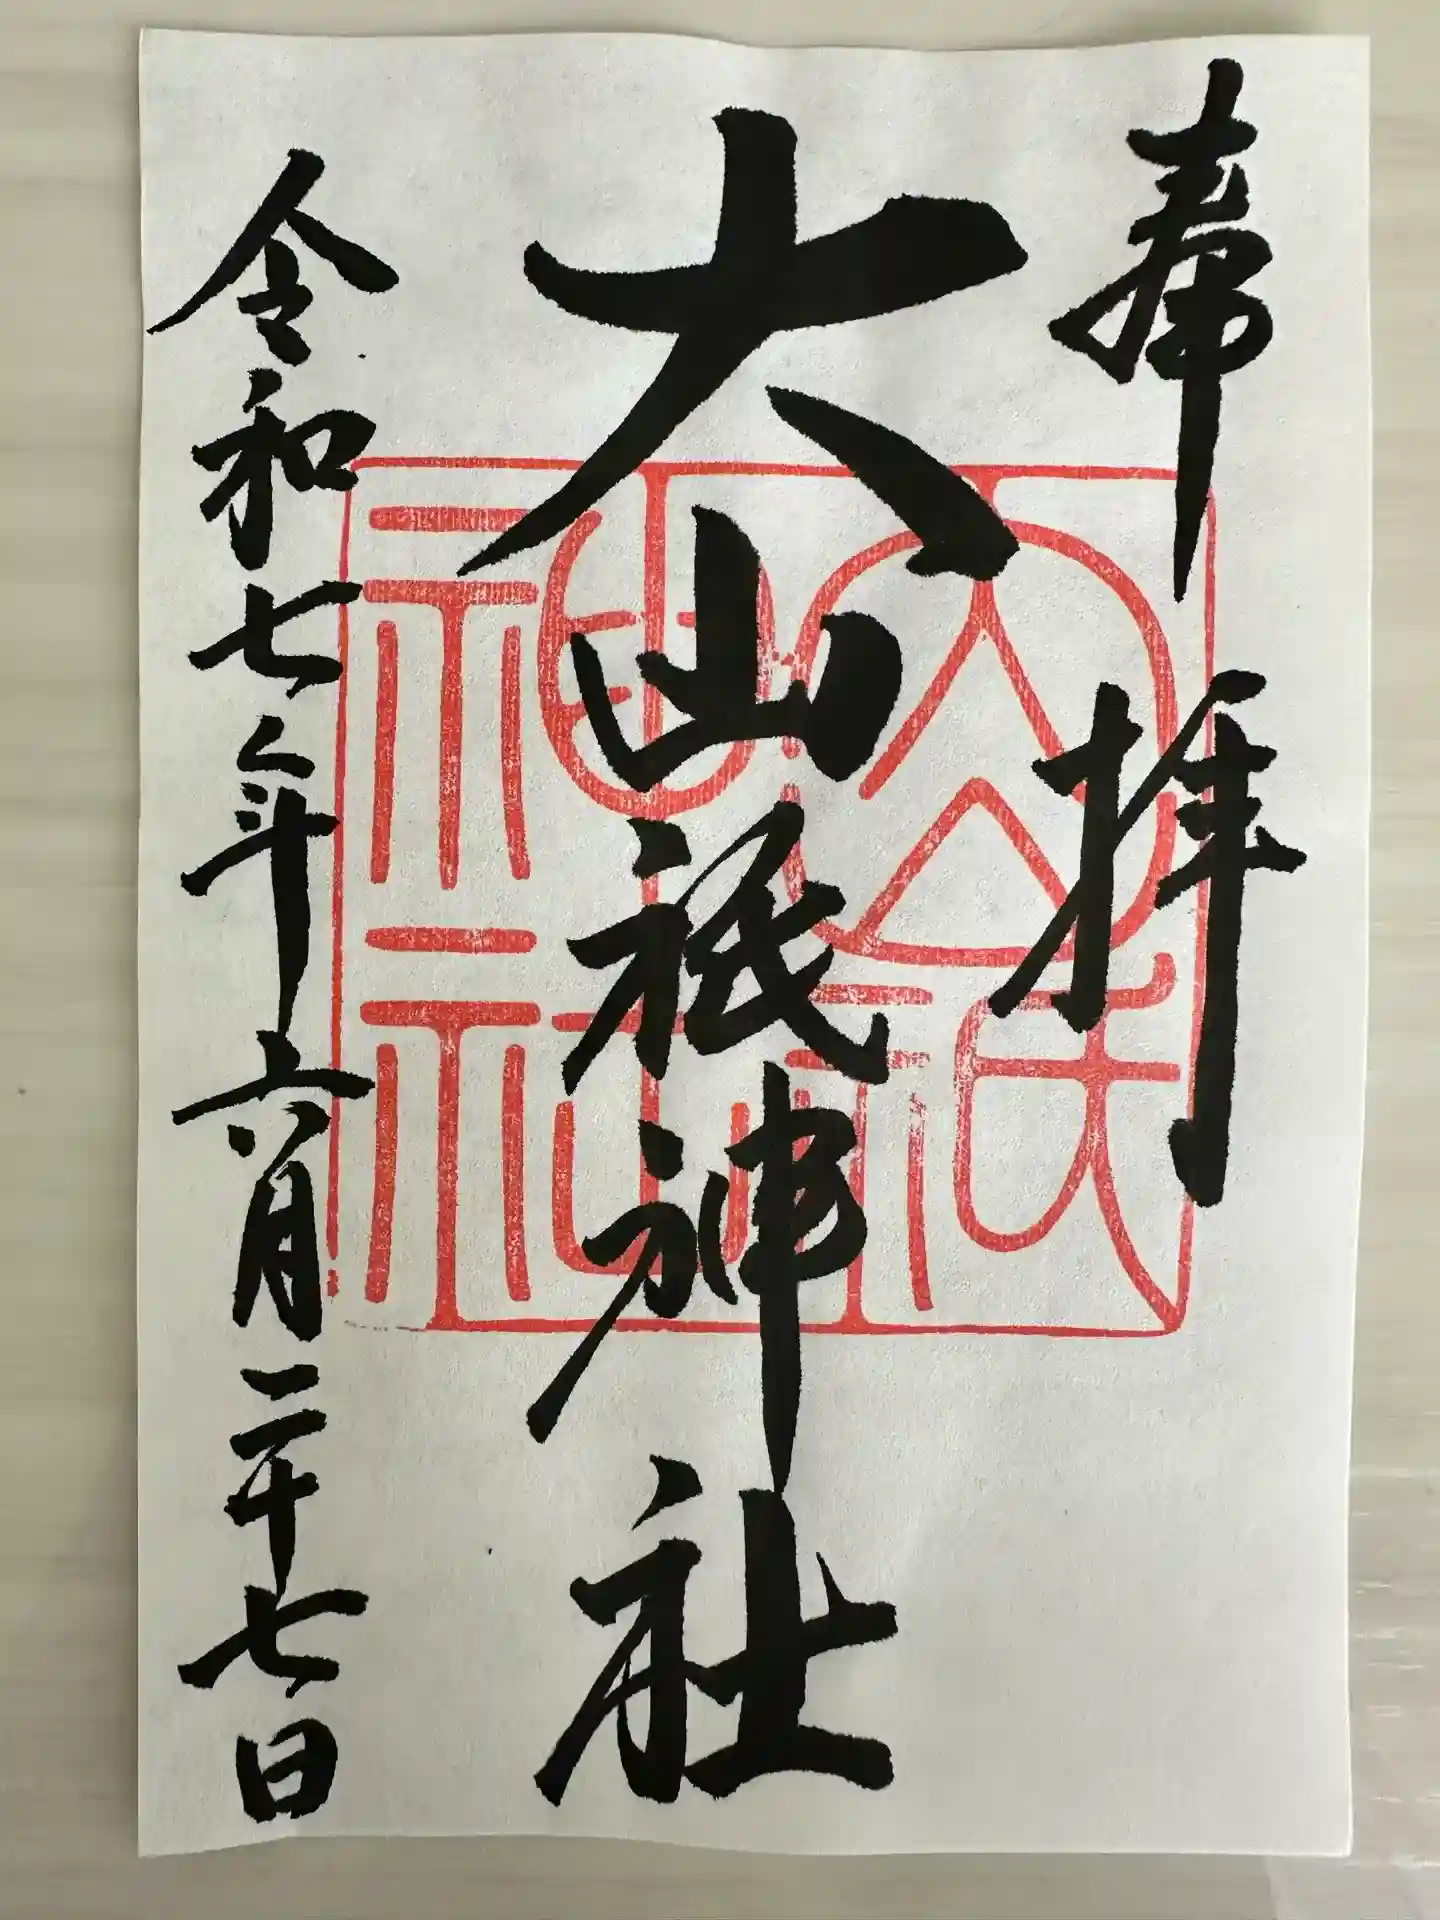 奉拝
大山祇神社
令和七年六月二十七日
大山祇
神社